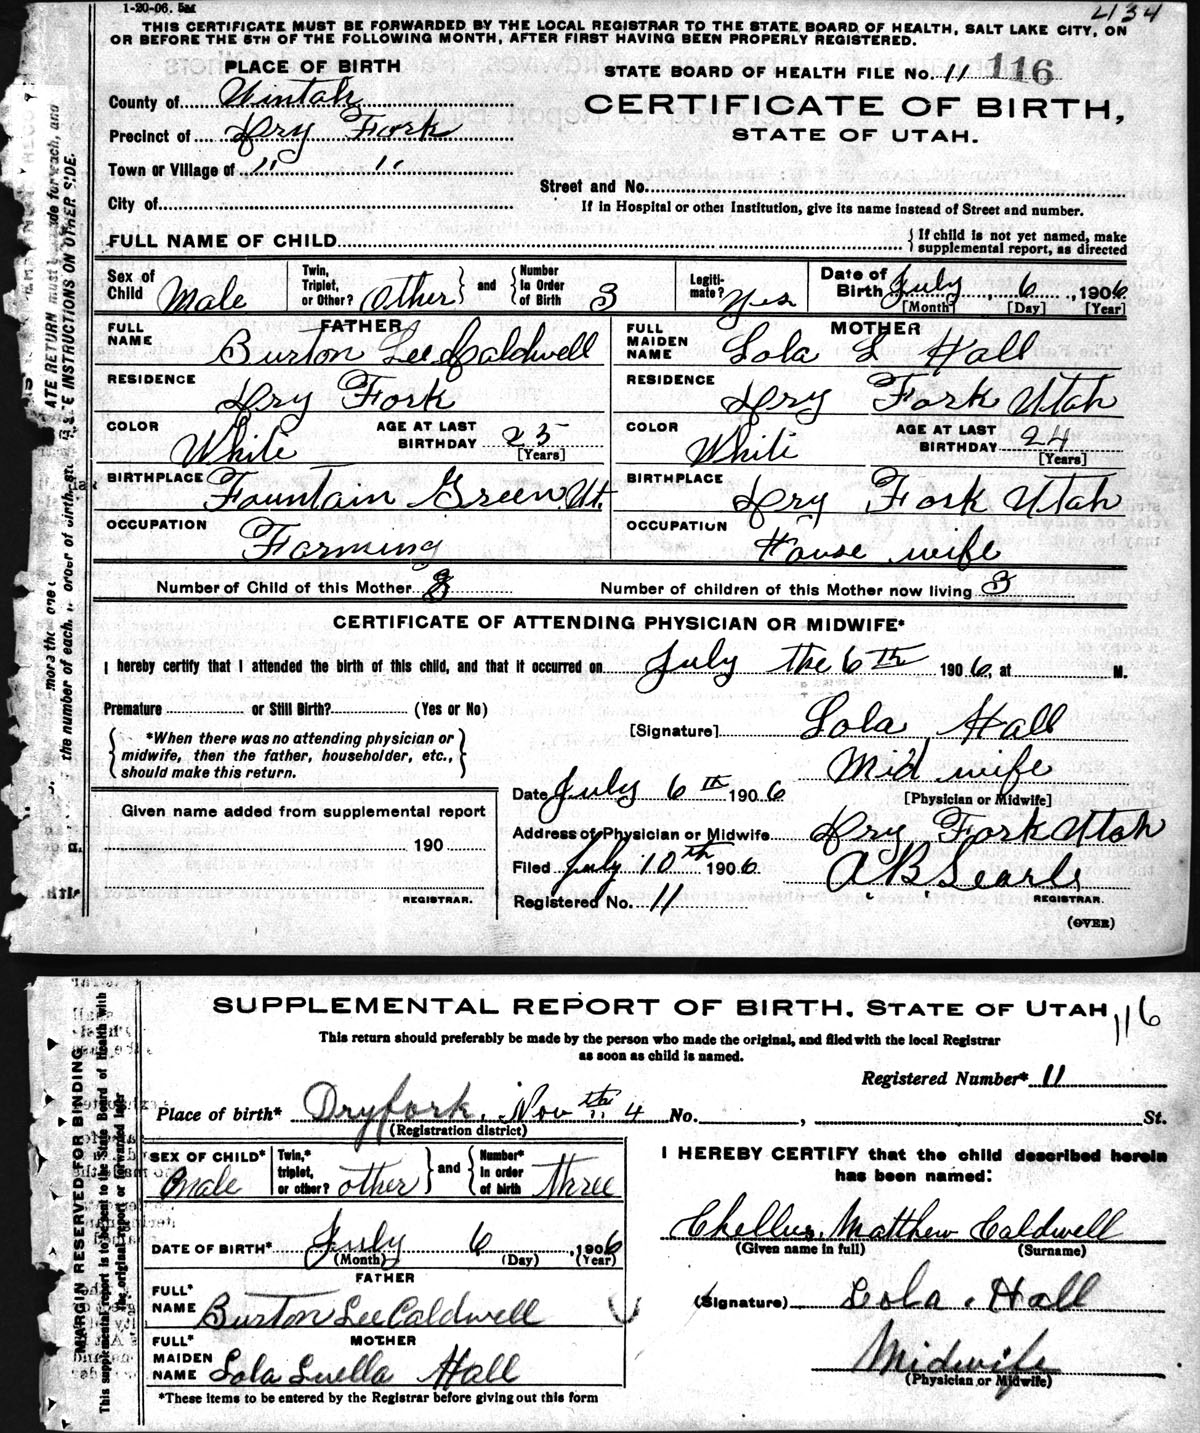 1-20-06. 5M
434
THIS CERTIFICATE MUST BE FORWARDED BY THE LOCAL REGISTRAR TO THE STATE BOARD OF HEALTH, SALT LAKE CITY, ON
OR BEFORE THE 5TH OF THE FOLLOWING MONTH, AFTER FIRST HAVING BEEN PROPERLY REGISTERED.
PLACE OF BIRTH
STATE BOARD OF HEALTH FILE No. 11 116
County of Uintah
CERTIFICATE OF BIRTH,
STATE OF UTAH.
Precinct of Dry Fork
Town or Village of " "
Street and No.
City of
If in Hospital or other Institution, give its name instead of Street and number.
FULL NAME OF CHILD
{ If child is not yet named, make
supplemental report, as directed
Sex of Child Male
Twin, Triplet, or Other? Other } and { Number in Order of Birth 3
Legiti-mate? Yes
Date of Birth July 6, 1906
[Month] [Day] [Year]
FATHER
FULL NAME Burton Lee Caldwell
MOTHER
FULL MAIDEN NAME Lola L Hall
RESIDENCE Dry Fork
RESIDENCE Dry Fork Utah
COLOR White AGE AT LAST BIRTHDAY 25 [Years]
COLOR White AGE AT LAST BIRTHDAY 24 [Years]
BIRTHPLACE Fountain Green Ut.
BIRTHPLACE Dry Fork Utah
OCCUPATION Farming
OCCUPATION House wife
Number of Child of this Mother 3
Number of children of this Mother now living 3
CERTIFICATE OF ATTENDING PHYSICIAN OR MIDWIFE*
I hereby certify that I attended the birth of this child, and that it occurred on July the 6th 1906, at M.
Premature or Still Birth? (Yes or No)
[Signature] Lola Hall
{ *When there was no attending physician or
midwife, then the father, householder, etc.,
should make this return. }
Mid wife
[Physician or Midwife]
Date July 6th 1906
Given name added from supplemental report
190
REGISTRAR.
Address of Physician or Midwife Dry Fork Utah
Filed July 10th 1906 A.B. Searle
REGISTRAR.
Registered No. 11
(OVER)
ATE RETURN must be made for each, and
SEE INSTRUCTIONS ON OTHER SIDE.
the number of each, in order of birth
SUPPLEMENTAL REPORT OF BIRTH, STATE OF UTAH
116
This return should preferably be made by the person who made the original, and filed with the local Registrar
as soon as child is named.
Registered Number* 11
Place of birth* Dryfork, Nov the 4 No. , St.
(Registration district)
SEX OF CHILD* Male
Twin,* triplet, or other? other } and { Number* in order of birth three
I HEREBY CERTIFY that the child described herein
has been named:
Chellus Matthew Caldwell
(Given name in full) (Surname)
DATE OF BIRTH* July 6, 1906
(Month) (Day) (Year)
FATHER
FULL* NAME Burton Lee Caldwell
(Signature) Lola Hall
MOTHER
FULL* MAIDEN NAME Lola Luella Hall
Midwife
(Physician or Midwife)
*These items to be entered by the Registrar before giving out this form
MARGIN RESERVED FOR BINDING
This supplemental report is to be sent to the State Board of Health with
the original report or forwarded later